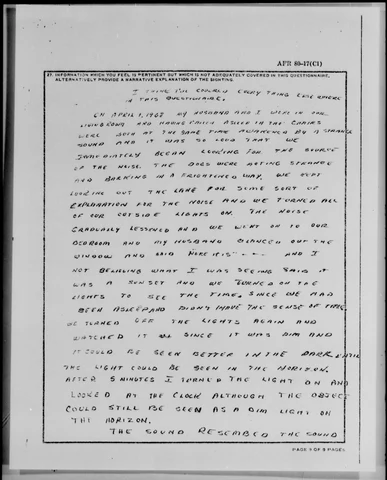 AFR 80-17(C1)
27. INFORMATION WHICH YOU FEEL IS PERTINENT BUT WHICH IS NOT ADEQUATELY COVERED IN THIS QUESTIONNAIRE.
ALTERNATIVELY PROVIDE A NARRATIVE EXPLANATION OF THE SIGHTING.
I THINK I'VE COVERED EVERYTHING ELSEWHERE
IN THIS QUESTIONNAIRE.
ON APRIL 1, MY HUSBAND AND I WERE IN OUR
LIVING ROOM AND ASLEEP IN THE CHAIRS
WERE BOTH AT THE SAME TIME AWAKENED BY A STRANGE
SOUND AND IT WAS SO LOUD THAT WE
IMMEDIATELY BEGAN LOOKING FOR THE SOURCE
OF THE NOISE. THE DOGS WERE ACTING STRANGE
AND BARKING IN A FRIGHTENED WAY. WE KEPT
LOOKING OUT THE LAKE FOR SOME SORT OF
EXPLANATION FOR THE NOISE AND WE TURNED ALL
OF OUR OUTSIDE LIGHTS ON. THE NOISE
GRADUALLY LESSENED AND WE WENT ON TO OUR
BEDROOM AND MY HUSBAND GLANCED OUT THE
WINDOW AND SAID "HERE IT IS" - - - AND I
NOT BELIEVING WHAT I WAS SEEING SAID IT
WAS A SUNSET AND WE TURNED ON THE
LIGHTS TO SEE THE TIME, SINCE WE HAD
BEEN ASLEEP AND DIDN'T HAVE THE SENSE OF TIME.
WE TURNED OFF THE LIGHTS AGAIN AND
WATCHED IT SINCE IT WAS DIM AND
IT COULD BE SEEN BETTER IN THE DARK UNTIL
THE LIGHT COULD BE SEEN IN THE HORIZON.
AFTER 5 MINUTES I TURNED THE LIGHT ON AND
LOOKED AT THE CLOCK ALTHOUGH THE OBJECT
COULD STILL BE SEEN AS A DIM LIGHT ON
THE HORIZON.
THE SOUND RESEMBED THE SOUND
PAGE OF 5 PAGES